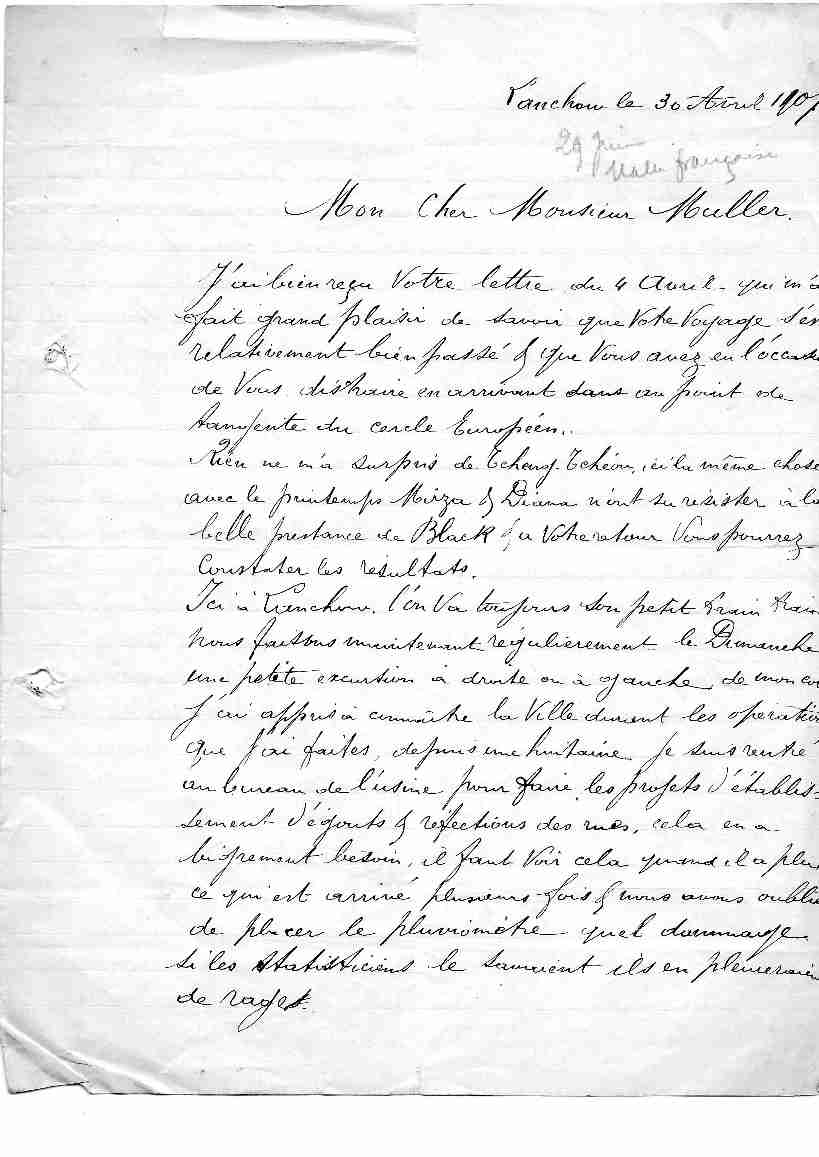 Lanchow le 30 Avril 1907
29 juin
Malle française
Mon Cher Monsieur Muller.
J'ai bien reçu Votre lettre du 4 Avril - qui m'a
fait grand plaisir de savoir que Votre Voyage s'es
relativement bien passé & que Vous avez eu l'occas
de Vous distraire en arrivant dans un point de
tangente du cercle Européen..
Rien ne m'a surpris de Tcheng-Tchéou, ici la même chose
avec le printemps Mirza & Diana n'ont su résister à la
belle prestance de Black & a Votre retour Vous pourrez
Constater les résultats.
Ici à Lanchow, l'on Va toujours son petit train train
Nous faisons maintenant régulièrement le Dimanche
une petite excurtion à droite ou à gauche, de mon co
J'ai appris à connaître la Ville durant les operation
que j'ai faites, depuis une huitaine Je suis rentré
au bureau de l'usine pour faire les projets d'établis-
sement d'égouts & refections des rues, cela en a
bigrement besoin, il faut Voir cela quand il a plu
ce qui est arrivé plusieurs fois & nous avons oublié
de placer le pluviomètre quel dommage
si les statisticiens le savaient ils en pleureraien
de rage.